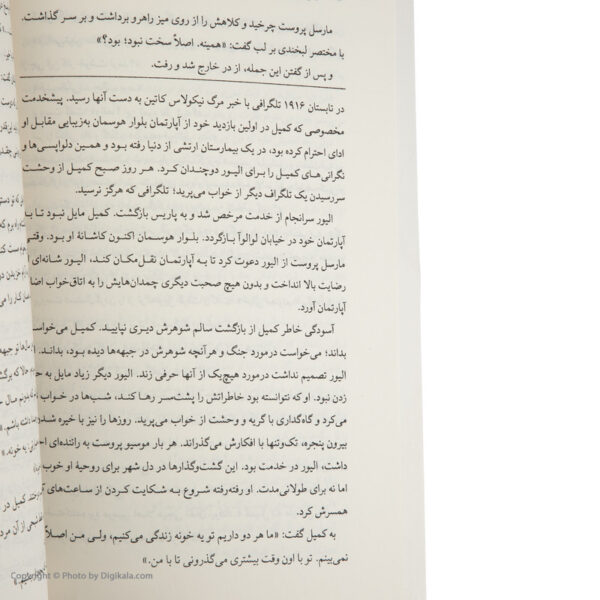 مارسل پروست چرخید و کلاهش را از روی میز راهرو برداشت و بر سر گذاشت.
با مختصر لبخندی بر لب گفت: «همینه. اصلاً سخت نبود؛ بود؟»
و پس از گفتن این جمله، از در خارج شد و رفت.
در تابستان ۱۹۱۶ تلگرافی با خبر مرگ نیکولاس کاتین به دست آنها رسید. پیشخدمت
مخصوصی که کمیل در اولین بازدید خود از آپارتمان بلوار هوسمان به‌زیبایی مقابل او
ادای احترام کرده بود، در یک بیمارستان ارتشی از دنیا رفته بود و همین دلواپسی‌ها و
نگرانی‌های کمیل را برای الیور دوچندان کرد. هر روز صبح کمیل از وحشت
سررسیدن یک تلگراف دیگر از خواب می‌پرید؛ تلگرافی که هرگز نرسید.
الیور سرانجام از خدمت مرخص شد و به پاریس بازگشت. کمیل مایل نبود تا به
آپارتمان خود در خیابان لوالوآ بازگردد. بلوار هوسمان اکنون کاشانهٔ او بود. وقتی
مارسل پروست از الیور دعوت کرد تا به آپارتمان نقل‌مکان کند، الیور شانه‌ای از
رضایت بالا انداخت و بدون هیچ صحبت دیگری چمدان‌هایش را به اتاق‌خواب
آپارتمان آورد.
آسودگی خاطر کمیل از بازگشت سالم شوهرش دیری نپایید. کمیل می‌خواست
بداند؛ می‌خواست درمورد جنگ و هرآنچه شوهرش در جبهه‌ها دیده بود، بداند.
الیور تصمیم نداشت درمورد هیچ‌یک از آنها حرفی زند. الیور دیگر زیاد مایل به
زدن نبود. او که نتوانسته بود خاطراتش را پشت‌سر رها کند، شب‌ها در خواب
می‌کرد و گاه‌گداری با گریه و وحشت از خواب می‌پرید. روزها را نیز با خیره شدن
بیرون پنجره، تک‌وتنها با افکارش می‌گذراند. هر بار موسیو پروست به راننده‌ای
داشت، الیور در خدمت بود. این گشت‌وگذارها در دل شهر برای روحیهٔ او خوب
اما نه برای طولانی‌مدت. او رفته‌رفته شروع به شکایت کردن از ساعت‌های
همسرش کرد.
به کمیل گفت: «ما هر دو داریم تو یه خونه زندگی می‌کنیم، ولی من اصلاً
نمی‌بینم. تو با اون وقت بیشتری می‌گذرونی تا با من.»
Copyright © Photo by Digikala.com